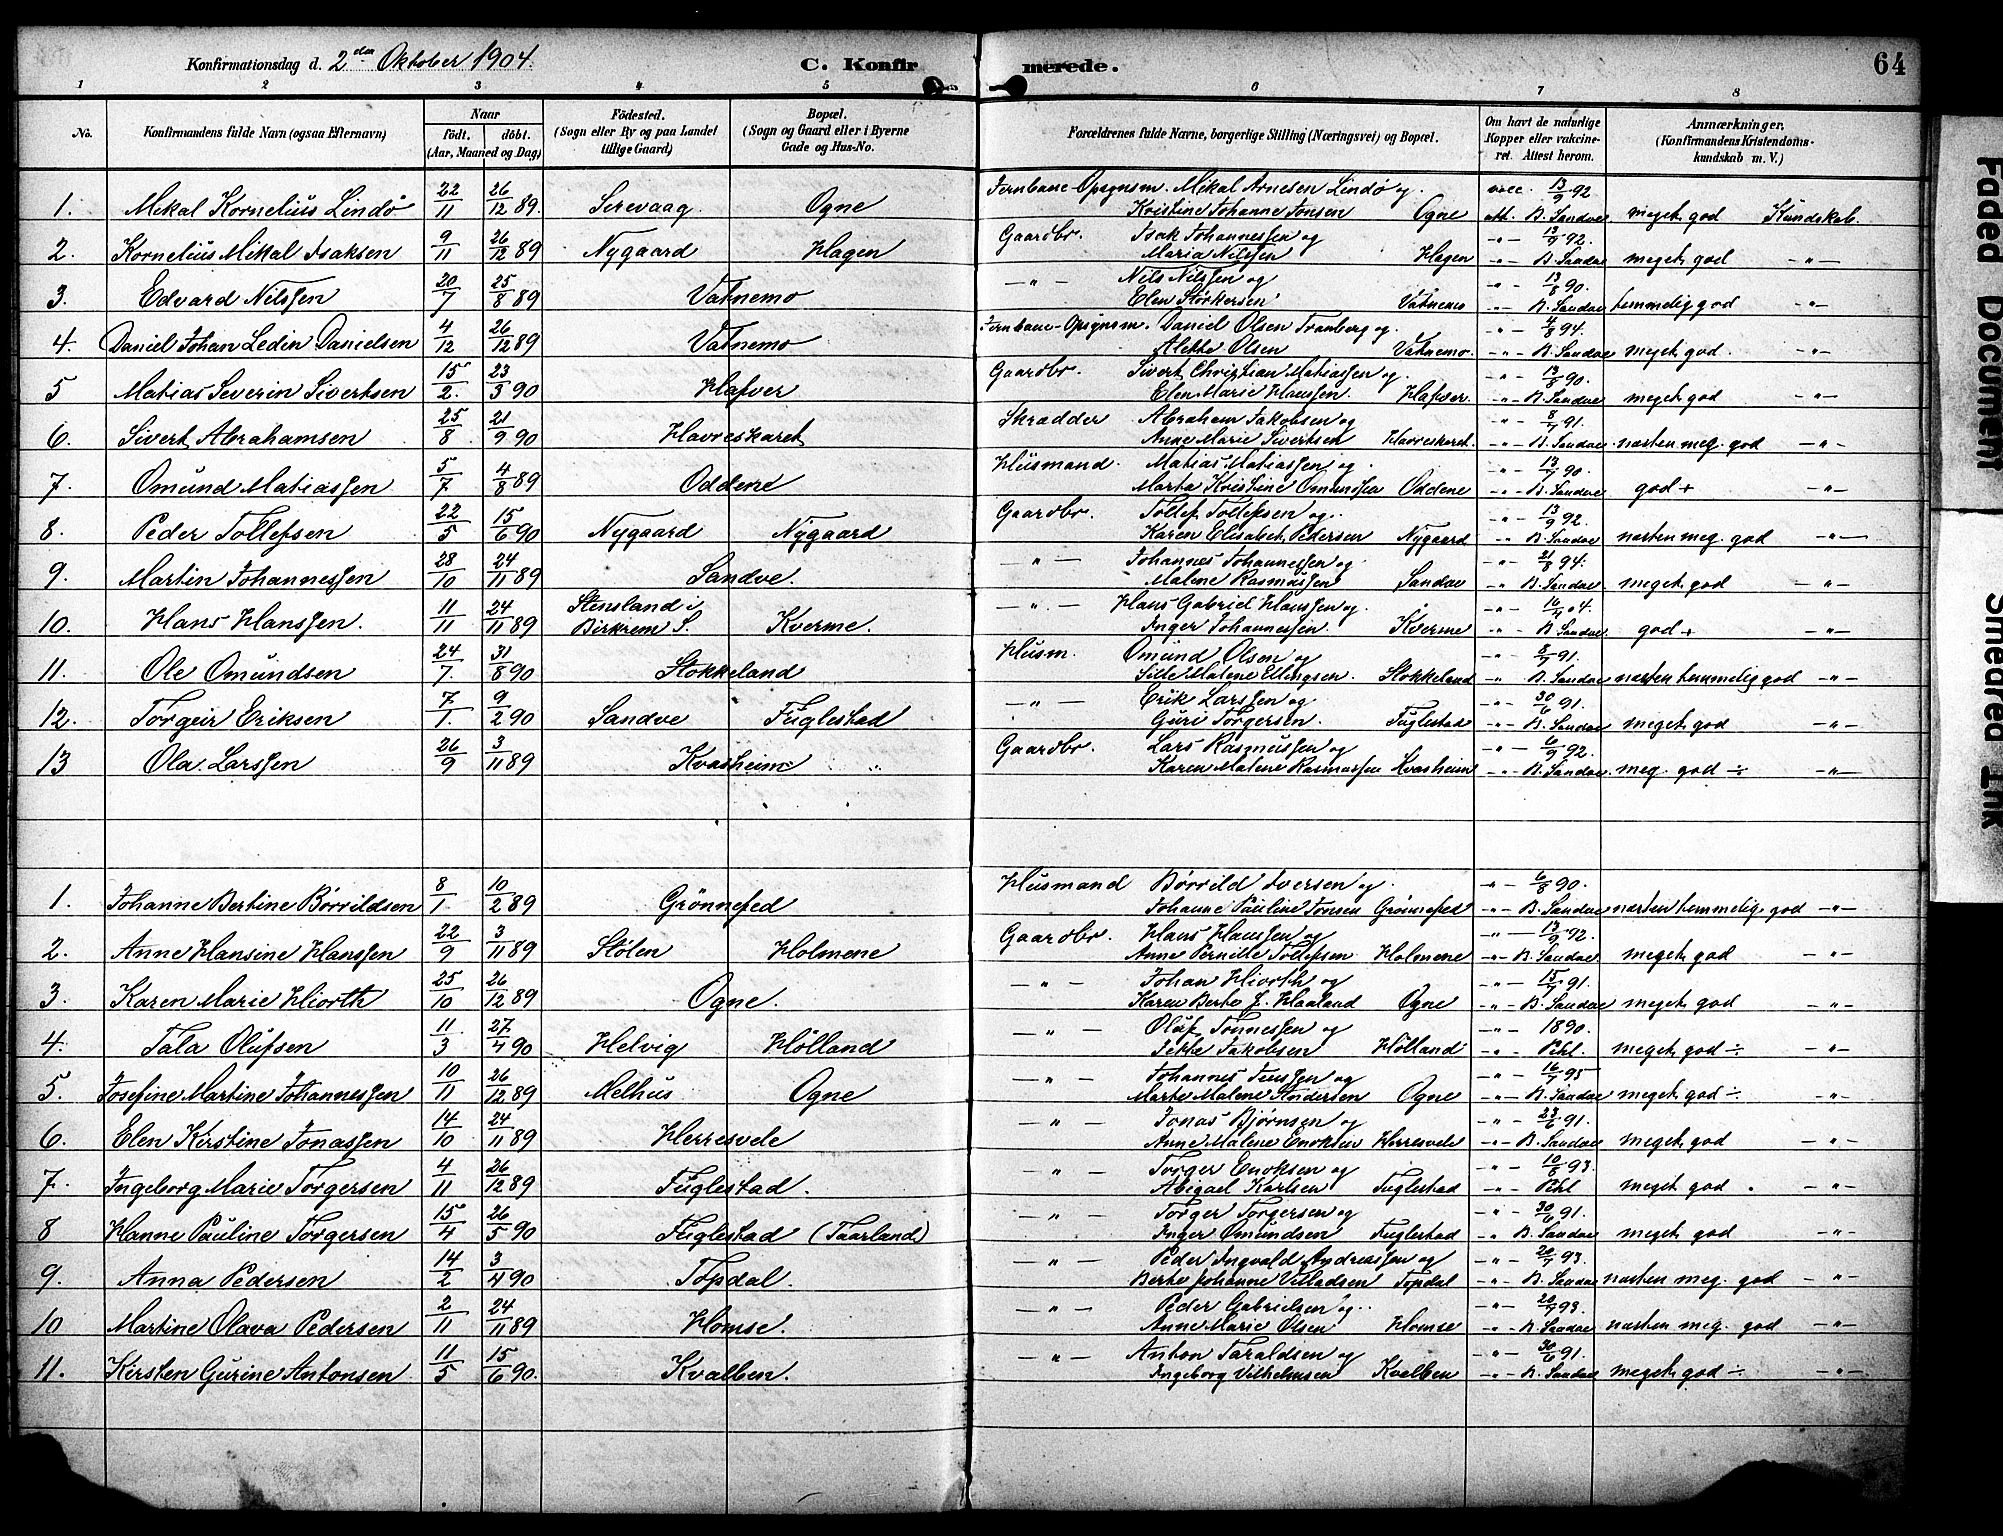 Konfirmationsdag d. 2den Oktober 1904. C. Konfirmerede. 64
1 2 3 4 5 6 7 8
No. Konfirmandens fulde Navn (ogsaa Efternavn) Naar födt. döbt. (Aar, Maaned og Dag) Födested. (Sogn eller By og paa Landet tillige Gaard) Bopæl. (Sogn og Gaard eller i Byerne Gade og Hus-No. Forældrenes fulde Navne, borgerlige Stilling (Næringsvei) og Bopæl. Om havt de naturlige Kopper eller vakcineret. Attest herom. Anmærkninger. (Konfirmandens Kristendomskundskab m. V.)
1. Mikal Kornelius Lindö 22/11 26/12 89. Sirevaag Ogne Jernbane-Opsynsm. Mikal Arnesen Lindö og vacc. 13/9 92
Kristine Johanne Jonsen Ogne att. B. Sandve meget god Kundskab.
2. Kornelius Mikal Isaksen 9/11 26/12 89 Nygaard Hagen Gaardbr. Isak Johannessen og -"- 13/9 92.
Maria Nilssen Hagen -"- B. Sandve meget god -"-
3. Edvard Nilssen 20/7 25/8 89 Vatnemo -"- Nils Nilssen og -"- 13/8 90.
Elen Störkersen Vatnemo -"- B. Sandve temmelig god -"-
4. Daniel Johan Ledin Danielsen 4/12 26/12 89 Vatnemo Jernbane-Opsynsm. Daniel Olsen Tranberg og -"- 4/8 94.
Alette Olsen Vatnemo. -"- B. Sandve meget god. -"-
5 Matias Severin Sivertsen 15/2. 23/3 90 Hafver Gaardbr. Sivert Christian Matiassen og -"- 13/8 90.
Elen Marie Hanssen. Hafver. -"- B. Sandve meget god -"-
6. Sivert Abrahamsen 25/8 21/9 90 Havreskaret Skrædder Abraham Jakobsen og -"- 8/7 91.
Anne Marie Sivertsen Havreskaret. -"- B. Sandve næsten meg. god -"-
7. Omund Matiassen 5/7 4/8 89 Oddene Husmand. Matias Matiassen og -"- 13/7 90.
Marta Kristine Omundsen Oddene -"- B. Sandve god + -"-
8. Peder Tollefsen 22/5 15/6 90 Nygaard Nygaard Gaardbr. Tollef Tollefsen og -"- 13/9 92.
Karen Elisabet Pedersen Nygaard -"- B. Sandve næsten meg. god -"-
9. Martin Johannessen 28/10 24/11 89 Sandve. -"- Johannes Johannessen og -"- 21/8 94.
Malene Rasmussen Sandve -"- B. Sandve meget god -"-
10. Hans Hanssen. 11/11 24/11 89 Stensland i Birkrem S. Kverme. -"- Hans Gabriel Hanssen og -"- 16/4 04.
Inger Johannessen. Kverme -"- B. Sandve god + -"-
11. Ole Omundsen 24/7. 31/8 90 Stokkeland Husm. Omund Olsen og -"- 8/7 91.
Sille Malene Ellingsen. Stokkeland -"- B. Sandve næsten temmelig god -"-
12. Torgeir Eriksen 7/1. 9/2 90 Sandve Fuglestad -"- Erik Larssen og -"- 30/6 91.
Guri Torgersen. Fuglestad -"- B. Sandve meget god -"-
13 Ola Larssen 26/9 3/11 89 Kvasheim Gaardbr. Lars Rasmussen og -"- 6/9 92.
Karen Malene Rasmussen Kvasheim -"- B. Sandve meg. god ÷ -"-
1. Johanne Bertine Börrildsen 8/1 10/2 89 Grönnefed Husmand Börrild Iversen og -"- 6/8 90.
Johanne Pauline Jonsen Grönnefed -"- B. Sandve næsten temmelig god -"-
2. Anne Hansine Hanssen 22/9 3/11 89 Stölen Holmene Gaardbr. Hans Hanssen og -"- 13/9 92.
Anne Pernille Tollefsen Holmene -"- B. Sandve. meget god -"-
3. Karen Marie Hiorth 25/10 26/12 89 Ogne. -"- Johan Hiorth og -"- 15/7 91.
Karen Berta J. Haaland Ogne -"- B. Sandve meget god -"-
4. Tala Olufsen 11/3 27/4 90 Helvig Hölland -"- Oluf Tönnessen og -"- 1890.
Jekte Jakobsen Hölland -"- Pihl. meget god ÷ -"-
5. Josefine Martine Johannessen 10/11 26/12 89 Melhus Ogne -"- Johannes Jenssen og -"- 16/7 95
Marte Malene Andersen Ogne -"- B. Sandve meget god ÷ -"-
6. Elen Kirstine Jonassen 14/10 24/11 89 Herresvele -"- Jonas Björnsen og -"- 23/6 91.
Anne Malene Enoksen Herresvele -"- B. Sandve meget god -"-
7. Ingeborg Marie Torgersen 4/11 26/12 89 Fuglestad. -"- Torger Enoksen og -"- 10/8 93.
Abigael Karlsen Fuglestad -"- Pihl meget god -"-
8 Hanne Pauline Torgersen 15/4 26/5 90 Fuglestad (Taarland) -"- Torger Torgersen og -"- 30/6 91.
Inger Omundsen Fuglestad -"- B. Sandve meget god -"-
9. Anna Pedersen 14/2 3/4 90 Topdal. -"- Peder Ingvald Andreassen og -"- 20/7 93.
Berte Johanne Villadsen Topdal -"- B. Sandve næsten meg. god -"-
10 Martine Olava Pedersen 2/11 24/11 89 Homse. -"- Peder Gabrielsen og -"- 20/7 93.
Anne Marie Olsen Homse -"- B. Sandve næsten meg. god -"-
11. Kirsten Gurine Antonsen 11/5 15/6 90. Kvalben. -"- Anton Taraldsen og -"- 30/6 91.
Ingeborg Vilhelmsen Kvalben -"- B. Sandve meget god ÷ -"-
Faded Document
Smeared Ink